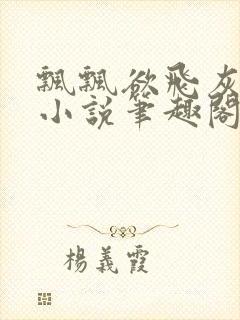 飄飄欲飛灰
小說筆趣閣
楊義霞